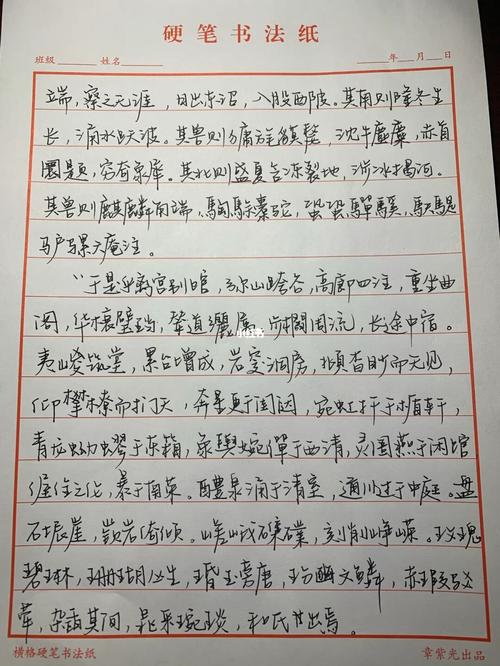 硬笔书法纸
班级 姓名 年 月 日
端，察之无涯，日出东沼，入殷西陂。其南则隆冬生
长，涌水跃波。其兽则㺎旄貘犛，沈牛麈麋，赤首
圜题，穷奇象犀。其北则盛夏含冻裂地，涉冰揭河。
其兽则麒麟角端，騊駼橐驼，蛩蛩驒騱，駃騠
驴骡
“于是乎离宫别馆，弥山跨谷，高廊四注，重坐曲
阁，华榱璧珰，辇道纚属，步櫩周流，长途中宿。
夷嵕筑堂，累台增成，岩窔洞房，頫杳眇而无见，
仰攀橑而扪天，奔星更于闺闼，宛虹扦于楯轩，
青龙蚴蟉于东箱，象舆婉僤于西清，灵圄燕于闲馆
偓佺之伦，暴于南荣。醴泉涌于清室，通川过于中庭。盘
石振崖，嵚岩倚倾。嵯峨磼礏，刻削峥嵘。玫瑰
碧琳，珊瑚丛生，琘玉旁唐，玢豳文鳞，赤瑕驳
荦，杂臿其间，晁采琬琰，和氏出焉。
横格硬笔书法纸
章紫光出品
小红书